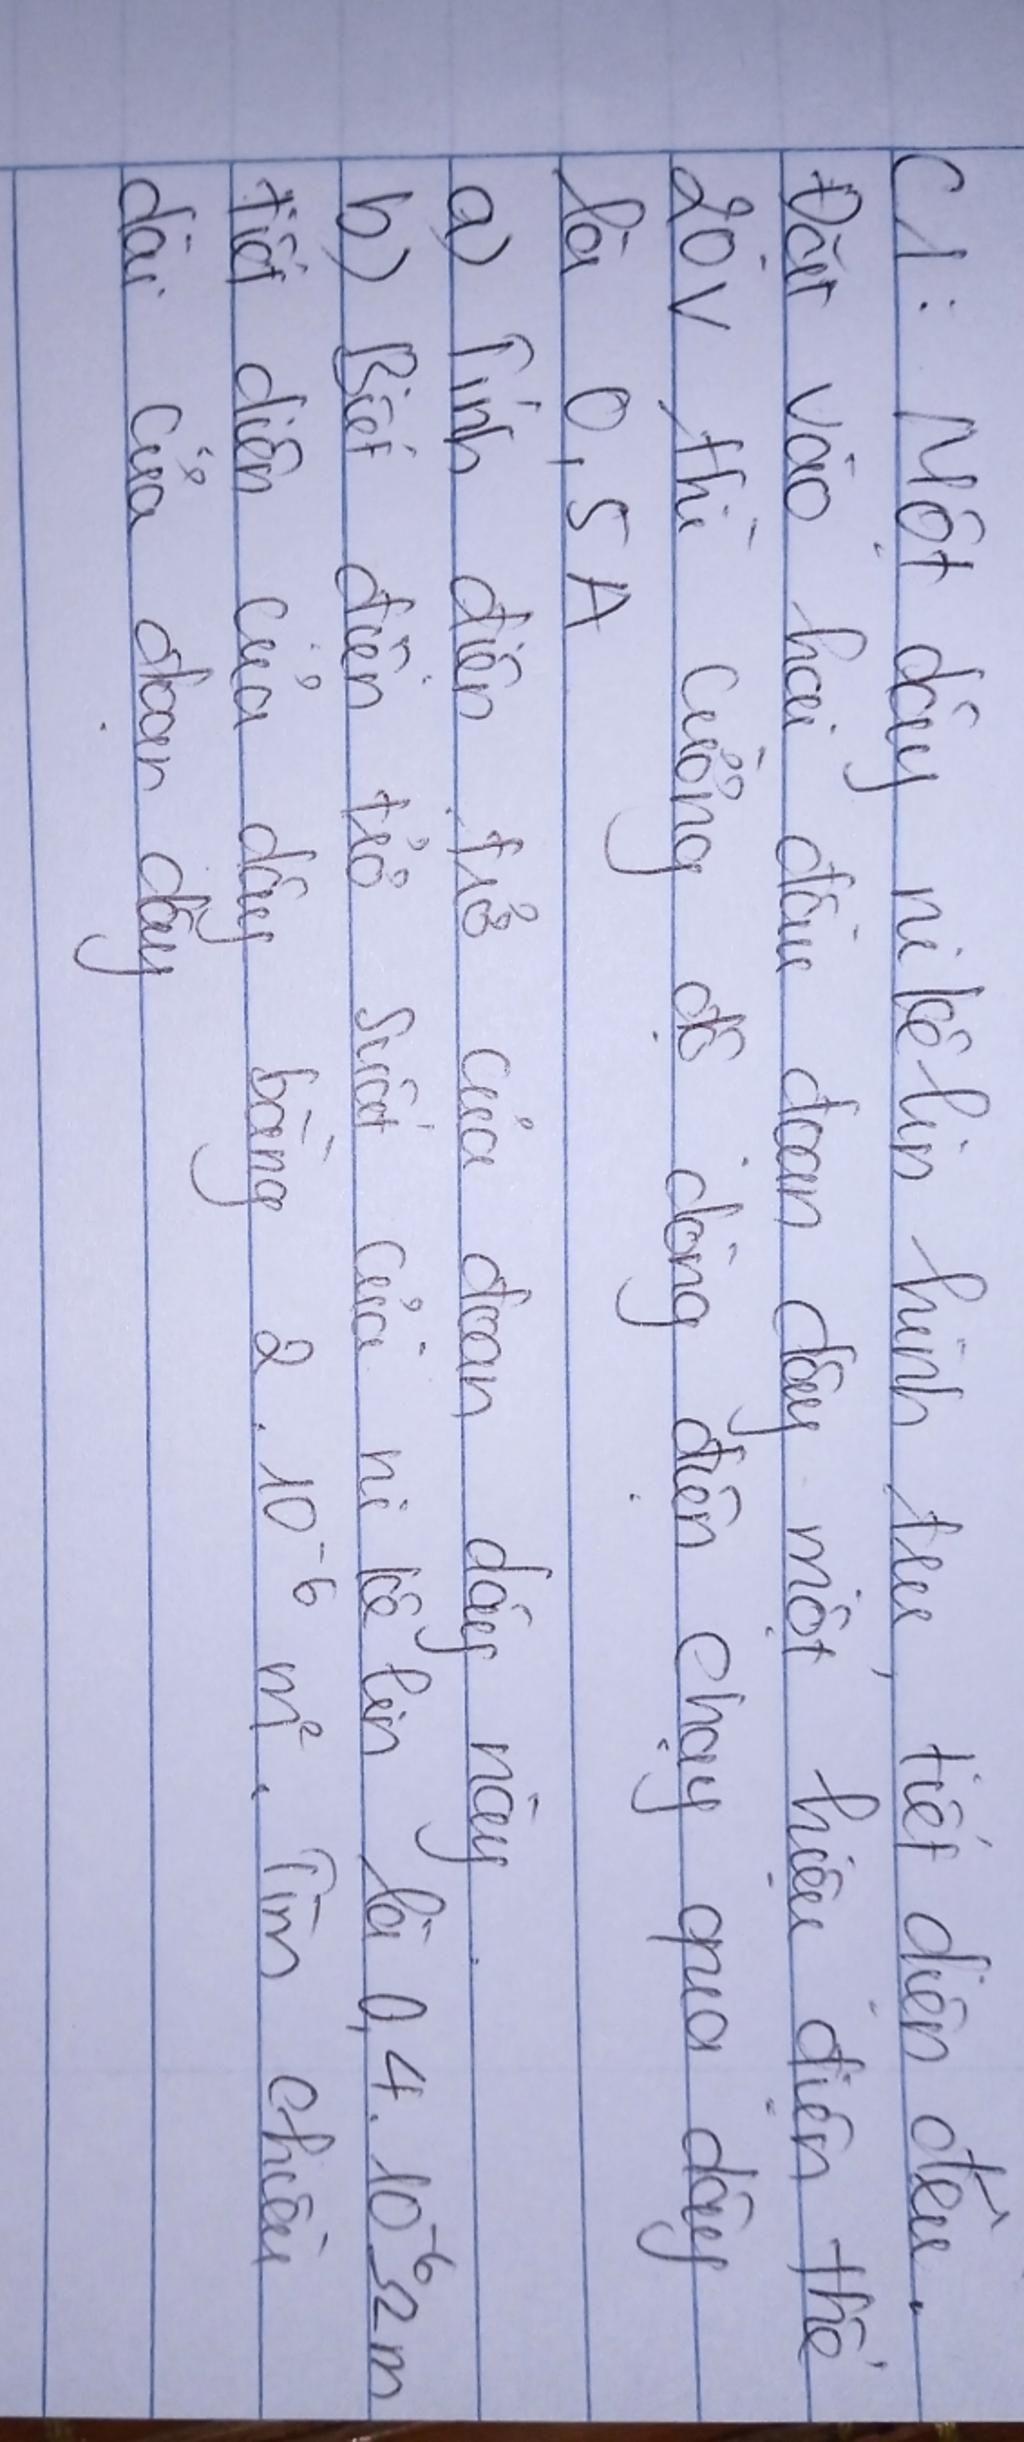 C1: Một dây ni kê lin hình trụ, tiết diện đều.
Đặt vào hai đầu đoạn dây một hiệu điện thế
20V thì cường độ dòng điện chạy qua dây
là 0,5A
a) Tính điện trở của đoạn dây này.
b) Biết điện trở suất của ni kê lin là 0,4.10⁻⁶Ωm
tiết diện của dây bằng 2.10⁻⁶ m². Tìm chiều
dài của đoạn dây